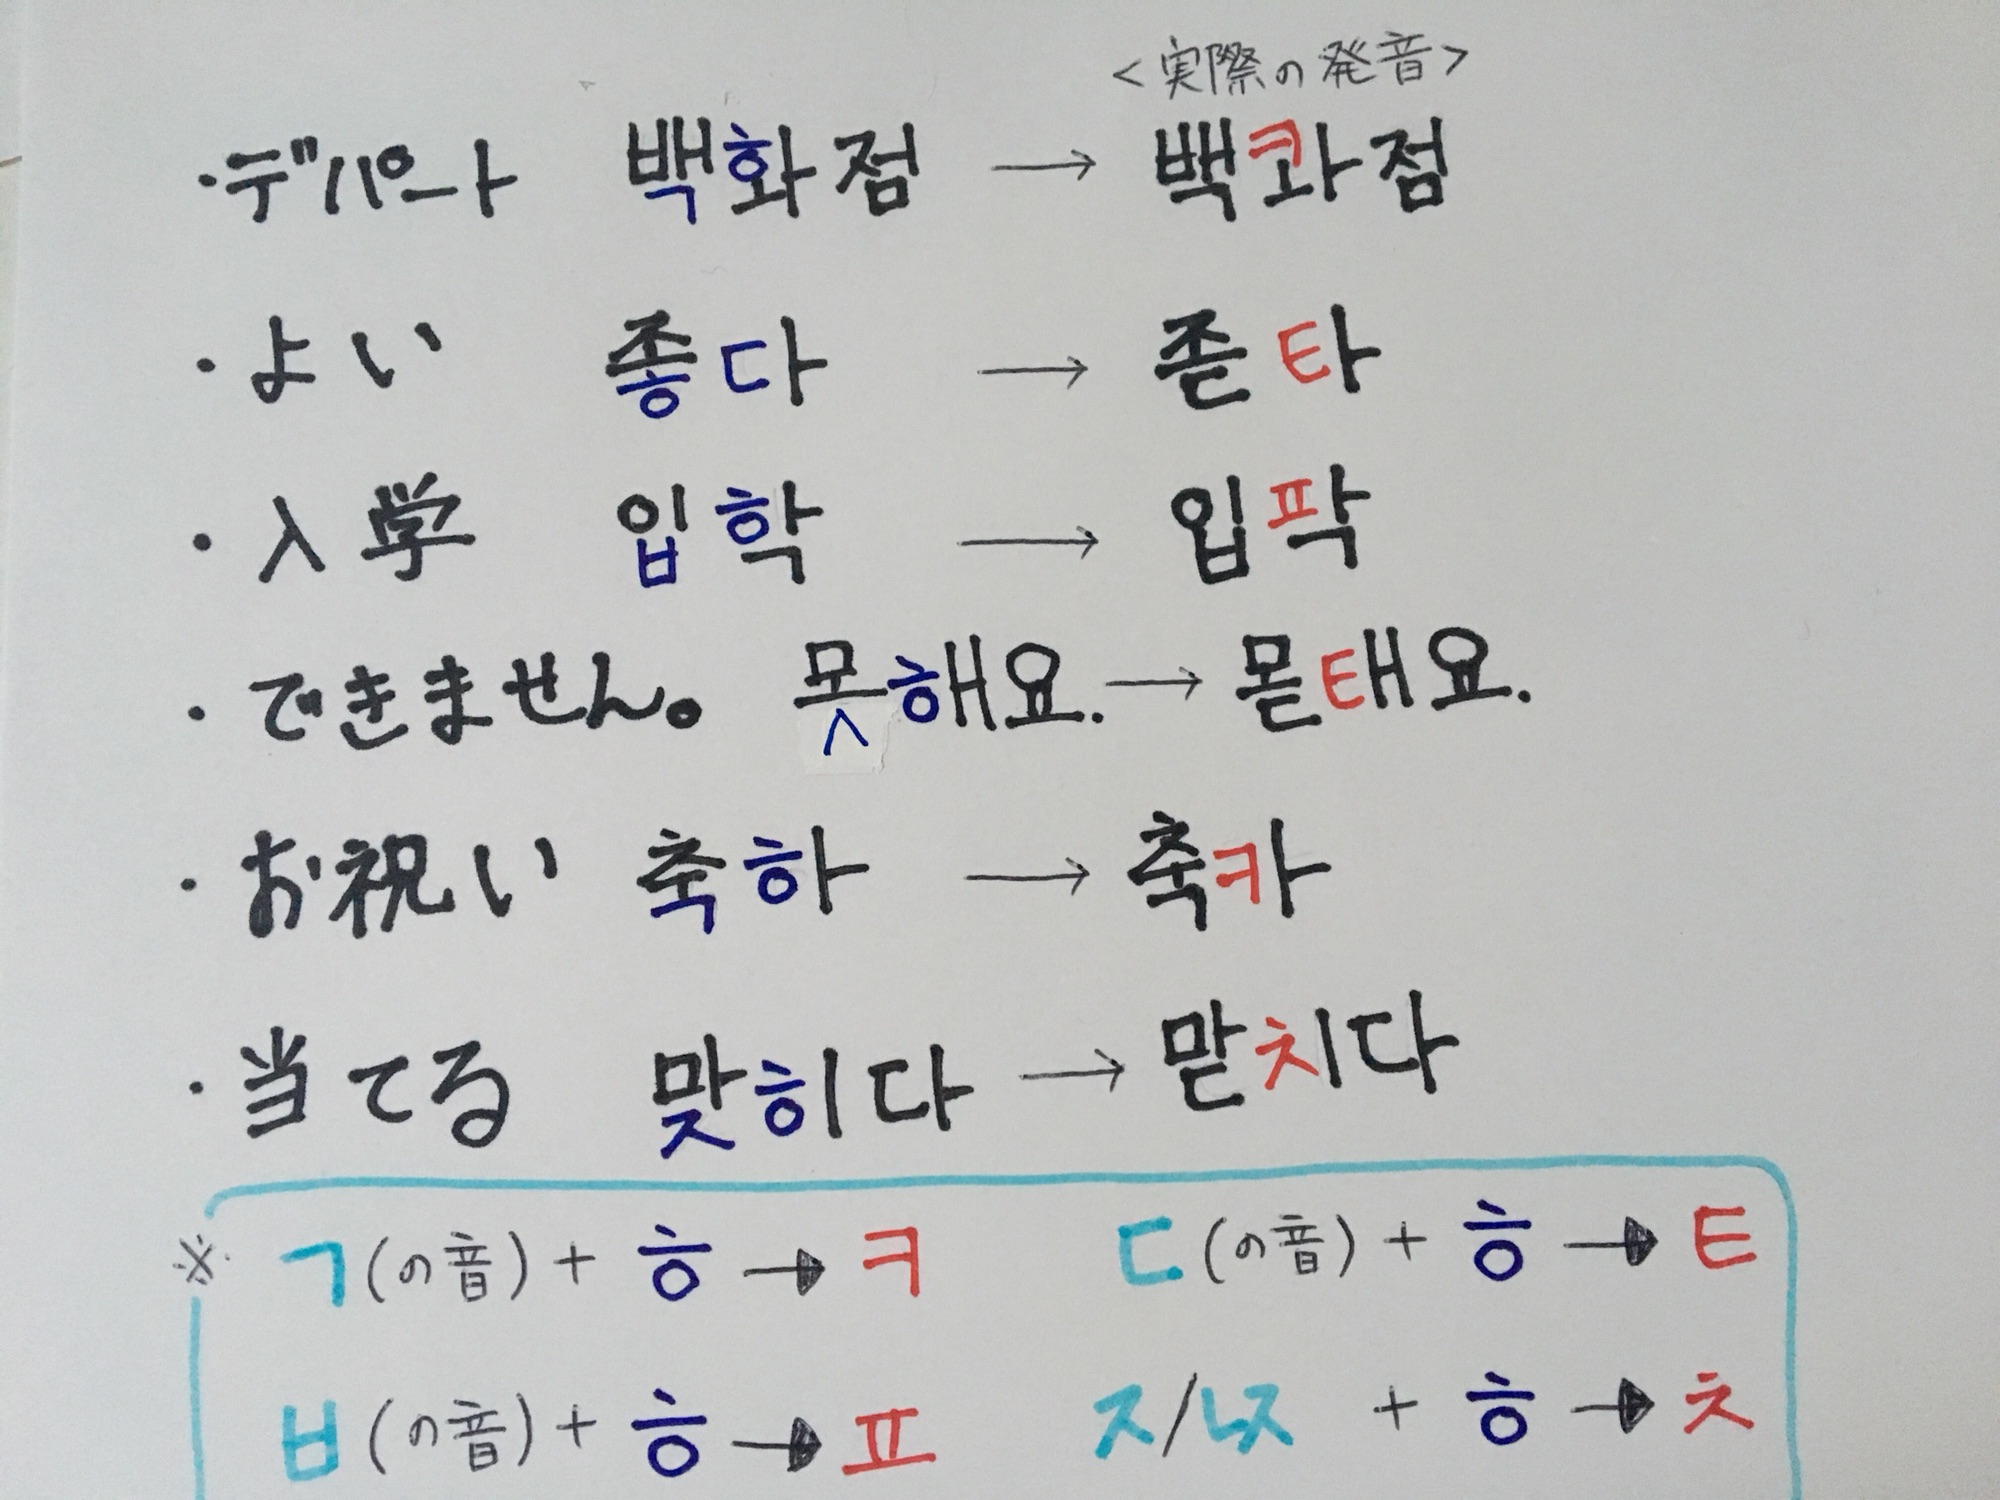 <実際の発音>
・デパート 백화점 → 백콰점
・よい 좋다 → 졷타
・入学 입학 → 입팍
・できません。 못해요. → 몯태요.
・お祝い 축하 → 축카
・当てる 맞히다 → 맏치다
※ ㄱ(の音)+ㅎ→ㅋ ㄷ(の音)+ㅎ→ㅌ
ㅂ(の音)+ㅎ→ㅍ ㅈ/ㄵ +ㅎ→ㅊ